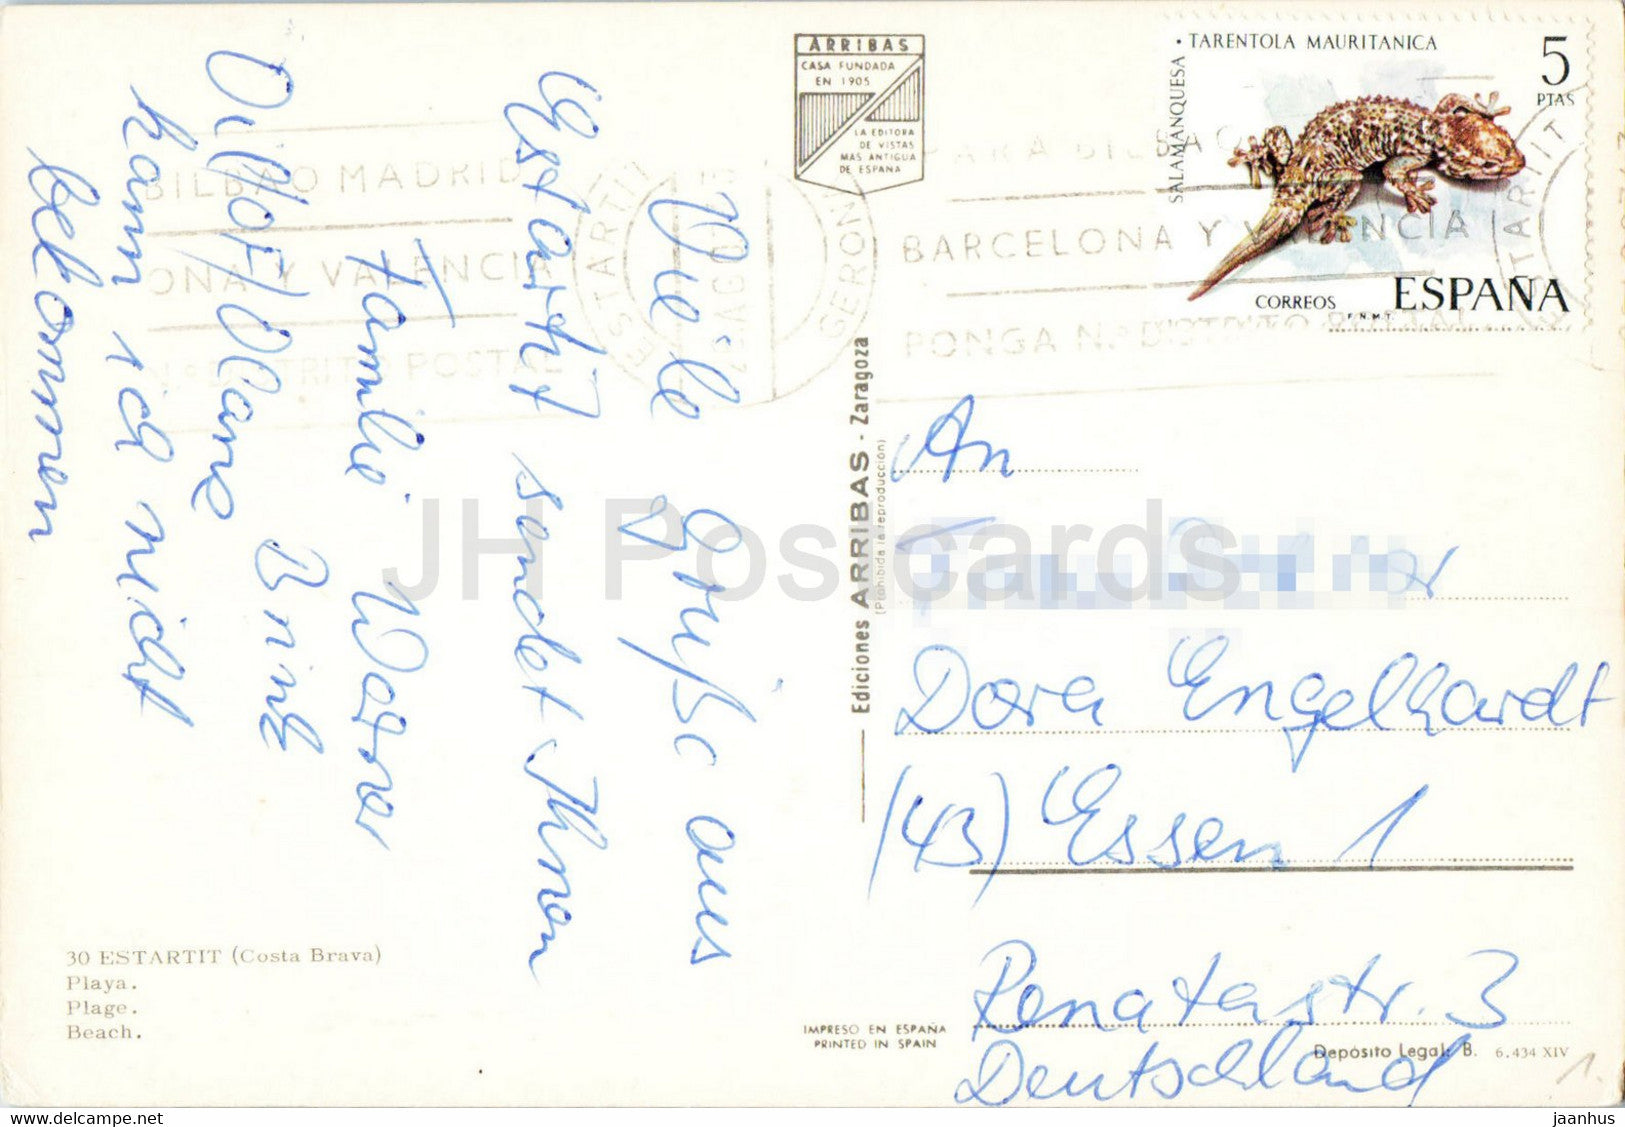 Viele Grüße aus
Estartit sendet Ihnen
Familie Wagner
Brink
kann ich nicht
bekommen
ARRIBAS
CASA FUNDADA
EN 1905
LA EDITORA
DE VISTAS
MAS ANTIGUA
DE ESPAÑA
TARENTOLA MAURITANICA
SALAMANQUESA
5
PTAS
CORREOS ESPAÑA
F.N.M.T.
BILBAO MADRID
ONA Y VALENCIA
N.º DISTRITO POSTAL
ESTARTIT
GERONA
PARA BILBAO
BARCELONA Y VALENCIA
PONGA N.º DISTRITO POSTAL
ESTARTIT
Ediciones ARRIBAS - Zaragoza
(Prohibida la reproducción)
An
Dora Engelhardt
(43) Essen 1
Renatastr. 3
Deutschland
30 ESTARTIT (Costa Brava)
Playa.
Plage.
Beach.
IMPRESO EN ESPAÑA
PRINTED IN SPAIN
Depósito Legal: B. 6.434 XIV
1.
JH Postcards
delcampe.net
jaanhus